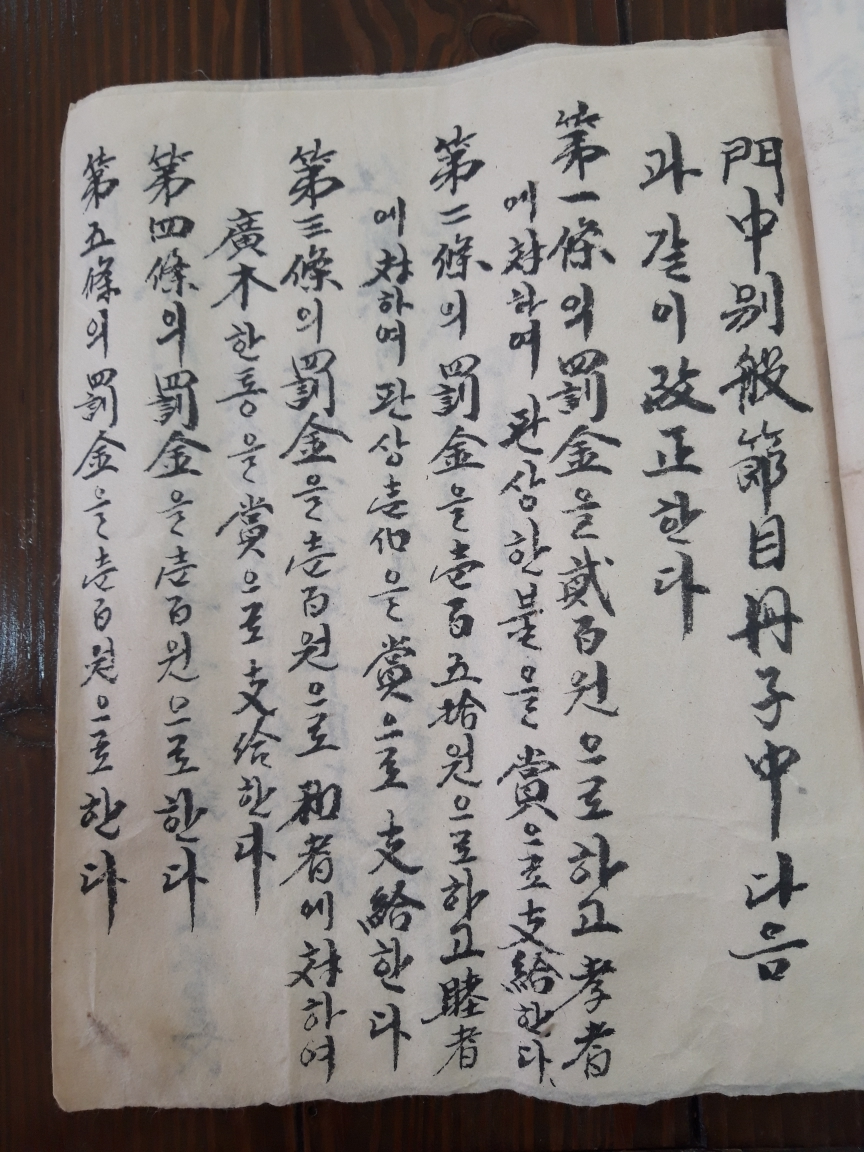 門中別般節目冊子中다음
과갈이改正한다
第一條의罰金을貳百원으로하고孝者
에対하여판상한불을賞으로支給한다
第二條의罰金을壹百五拾원으로하고睦者
에対하여판상壹個을賞으로支給한다
第三條의罰金을壹百원으로和者에対하여
廣木한통을賞으로支給한다
第四條의罰金을壹百원으로한다
第五條의罰金을壹百원으로한다